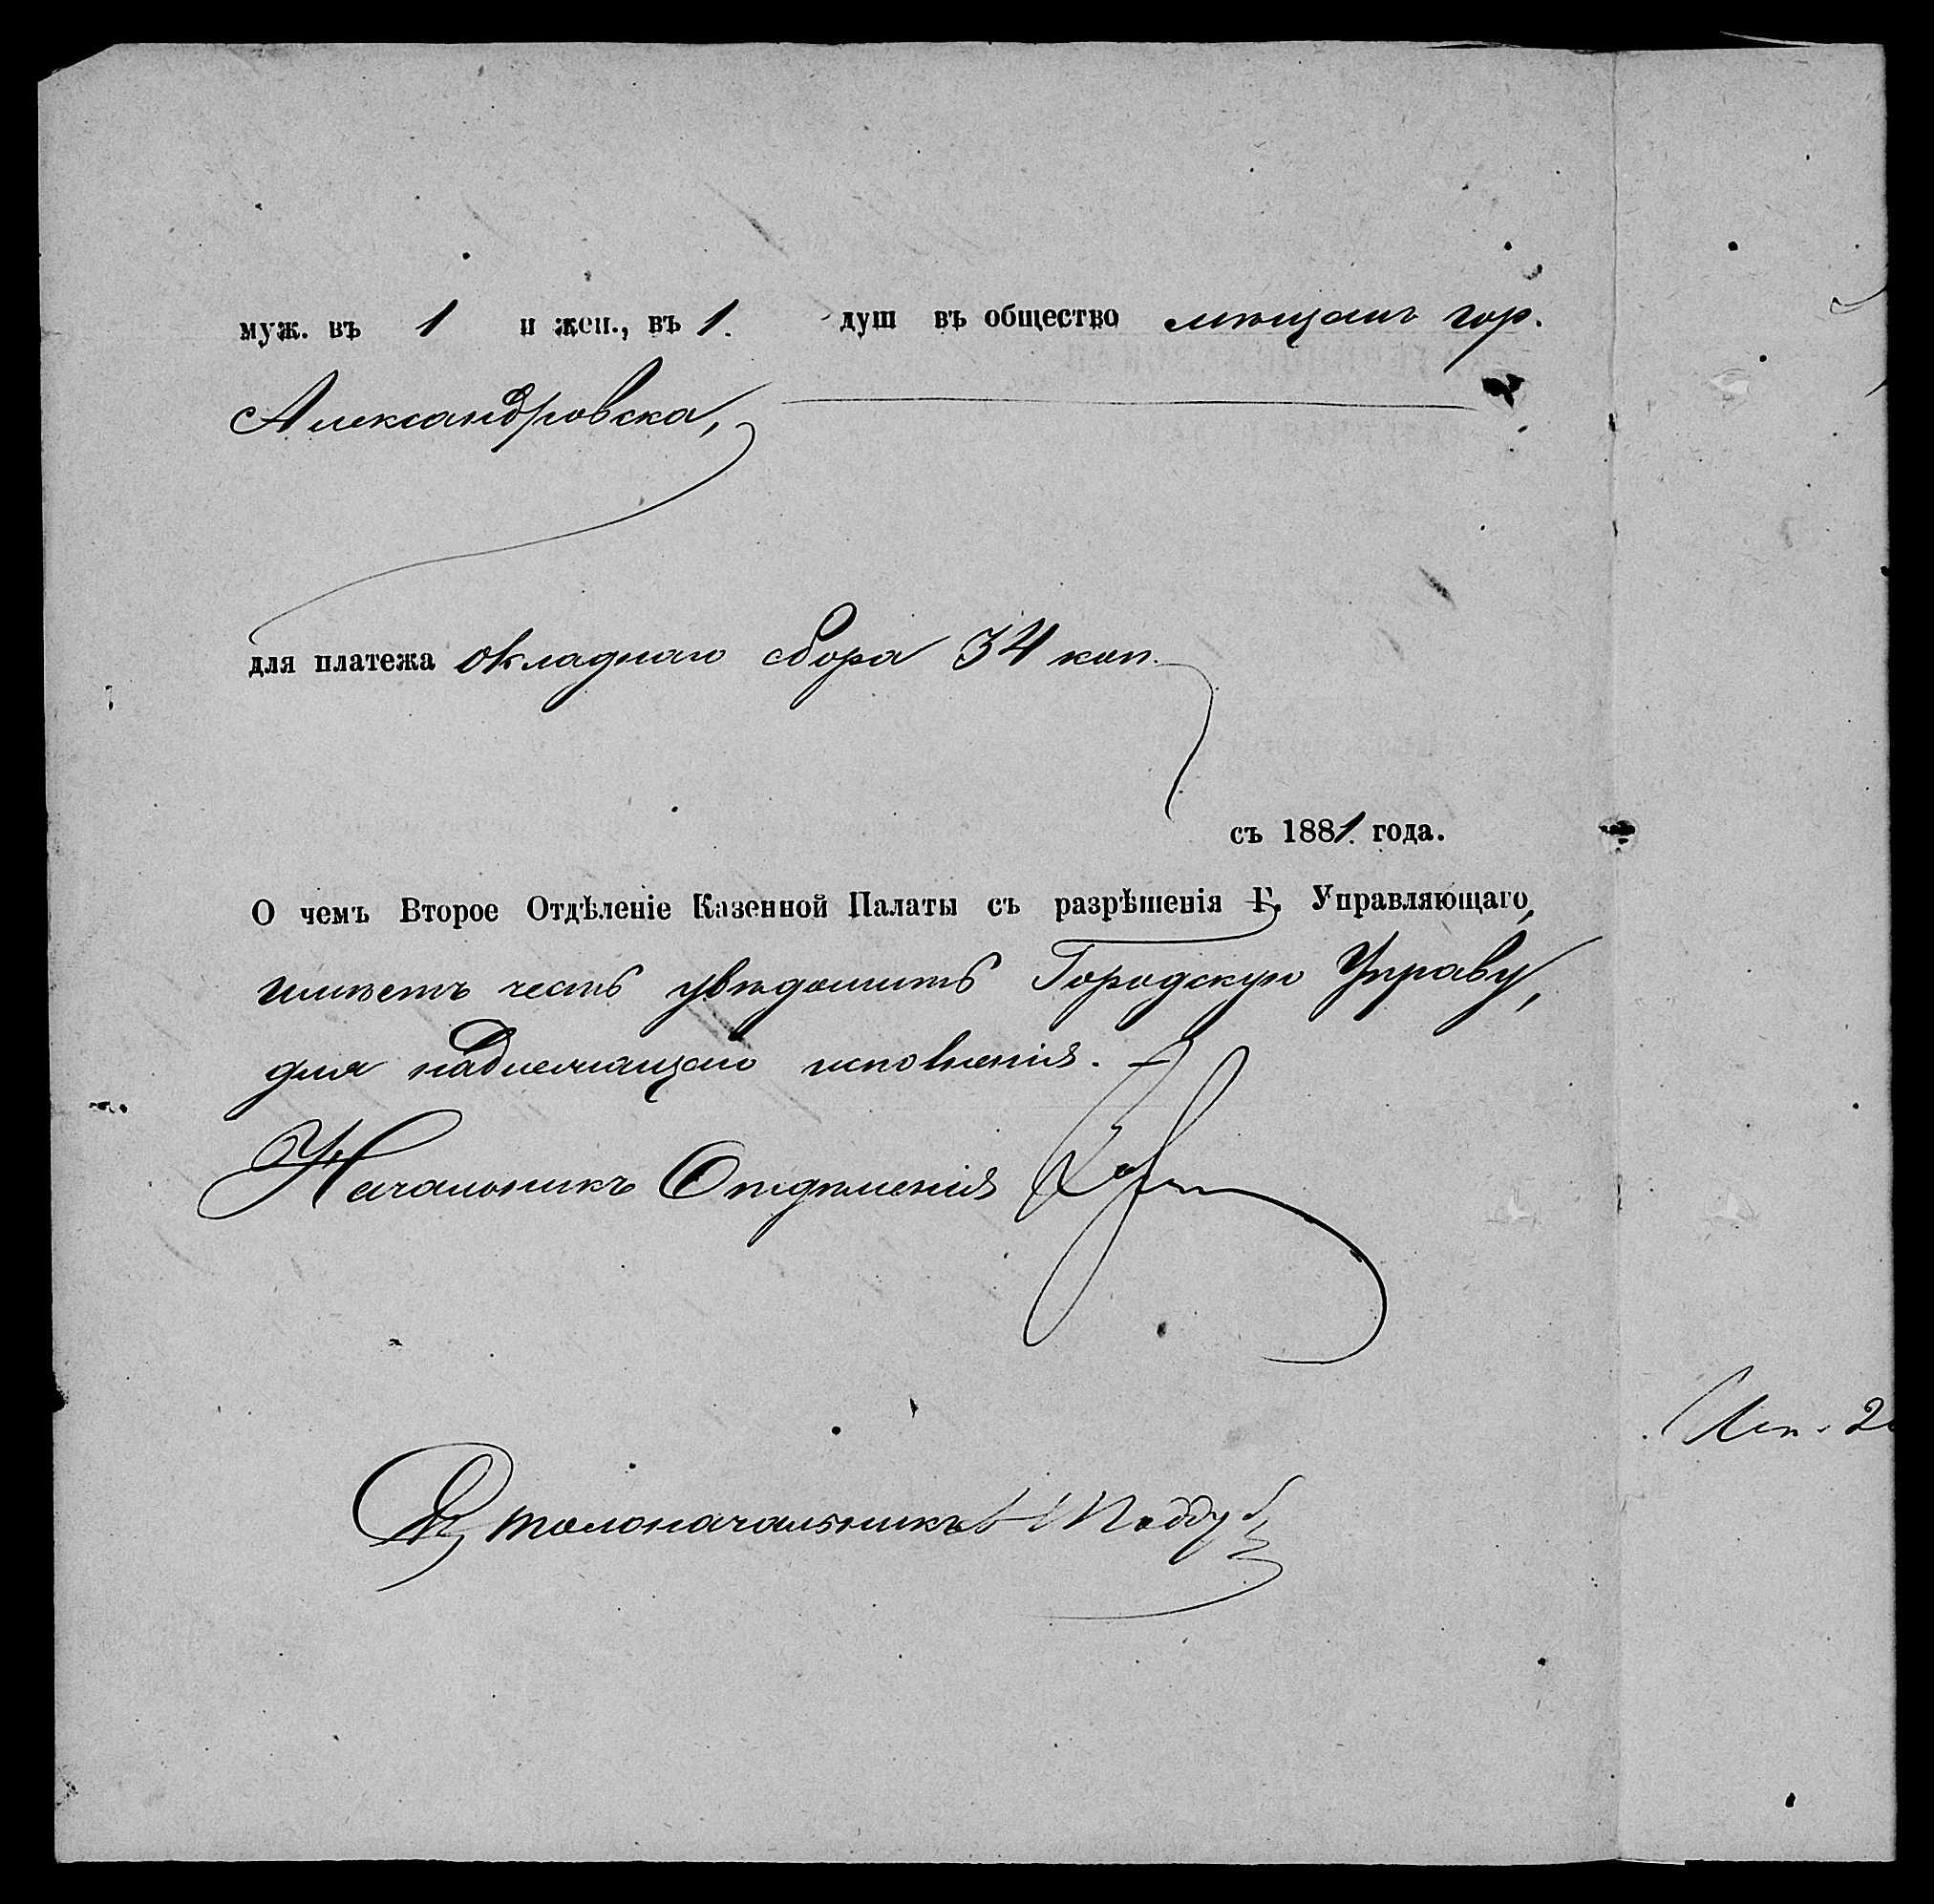 муж. въ 1 и жен., въ 1. душ въ общество мѣщанъ гор.
Александровска,
для платежа окладнаго сбора 34 коп.
съ 1881. года.
О чемъ Второе Отдѣленіе Казенной Палаты съ разрѣшенія Г. Управляющаго,
имѣетъ честь увѣдомить Городскую Управу,
для надлежащаго исполненія.
Начальникъ Отдѣленія
Столоначальникъ